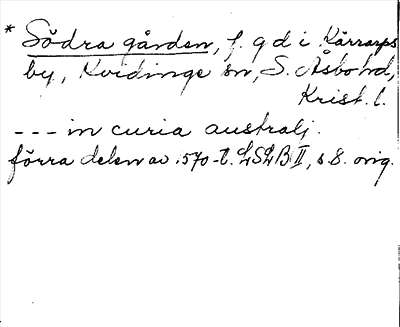 * Södra gården, f. gd i Kärrarps
by, Kvidinge sn, S. Åsbo hd,
Krist. l.
--- in curia australj.
förra delen av 1570-t. LSLB II, s 8. orig.